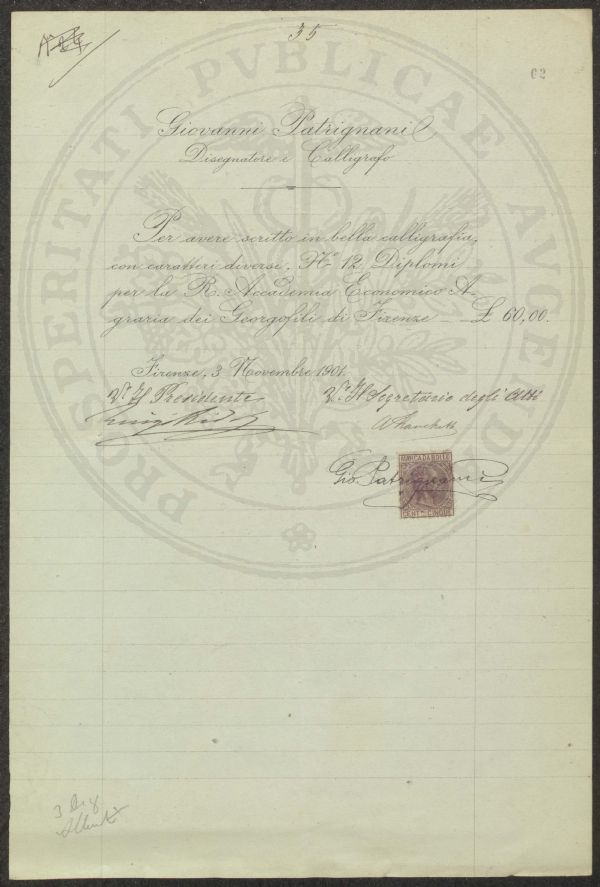 35
62
Giovanni Patrignani
Disegnatore e Calligrafo
Per avere scritto in bella calligrafia,
con caratteri diversi, No 12 Diplomi
per la R. Accademia Economico A-
graria dei Georgofili di Firenze £ 60,00.
Firenze, 3 Novembre 1901.
Vo Il Presidente
Vo Il Segretario degli Atti
Gio Patrignani
MARCA DA BOLLO
CENT. CINQUE
PROSPERITATI PVBLICAE AVGENDAE